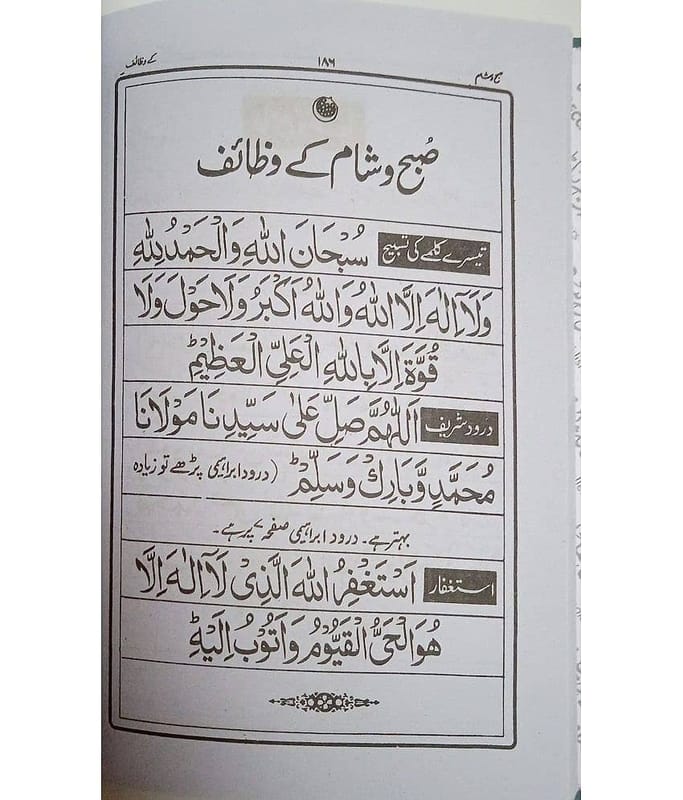 صبح وشام ۱۸۶ کے وظائف
صُبح وشام کے وظائف
تیسرے کلمے کی تسبیح سُبْحَانَ اللهِ وَالْحَمْدُ لِلّٰهِ
وَلَآ اِلٰهَ اِلَّا اللهُ وَاللهُ اَكْبَرُ وَلَا حَوْلَ وَلَا
قُوَّةَ اِلَّا بِاللهِ الْعَلِيِّ الْعَظِيْمِؕ
درود شریف اَللّٰهُمَّ صَلِّ عَلٰى سَيِّدِنَا مَوْلَانَا
مُحَمَّدٍ وَّبَارِكْ وَسَلِّمْؕ (درود ابراہیمی پڑھے تو زیادہ
بہتر ہے۔ درود ابراہیمی صفحہ ۷ پر ہے۔
استغفار اَسْتَغْفِرُ اللهَ الَّذِىْ لَآ اِلٰهَ اِلَّا
هُوَ الْحَىُّ الْقَيُّوْمُ وَاَتُوْبُ اِلَيْهِؕ